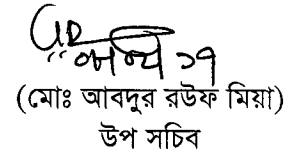 (মোঃ আবদুর রউফ মিয়া)
উপ সচিব